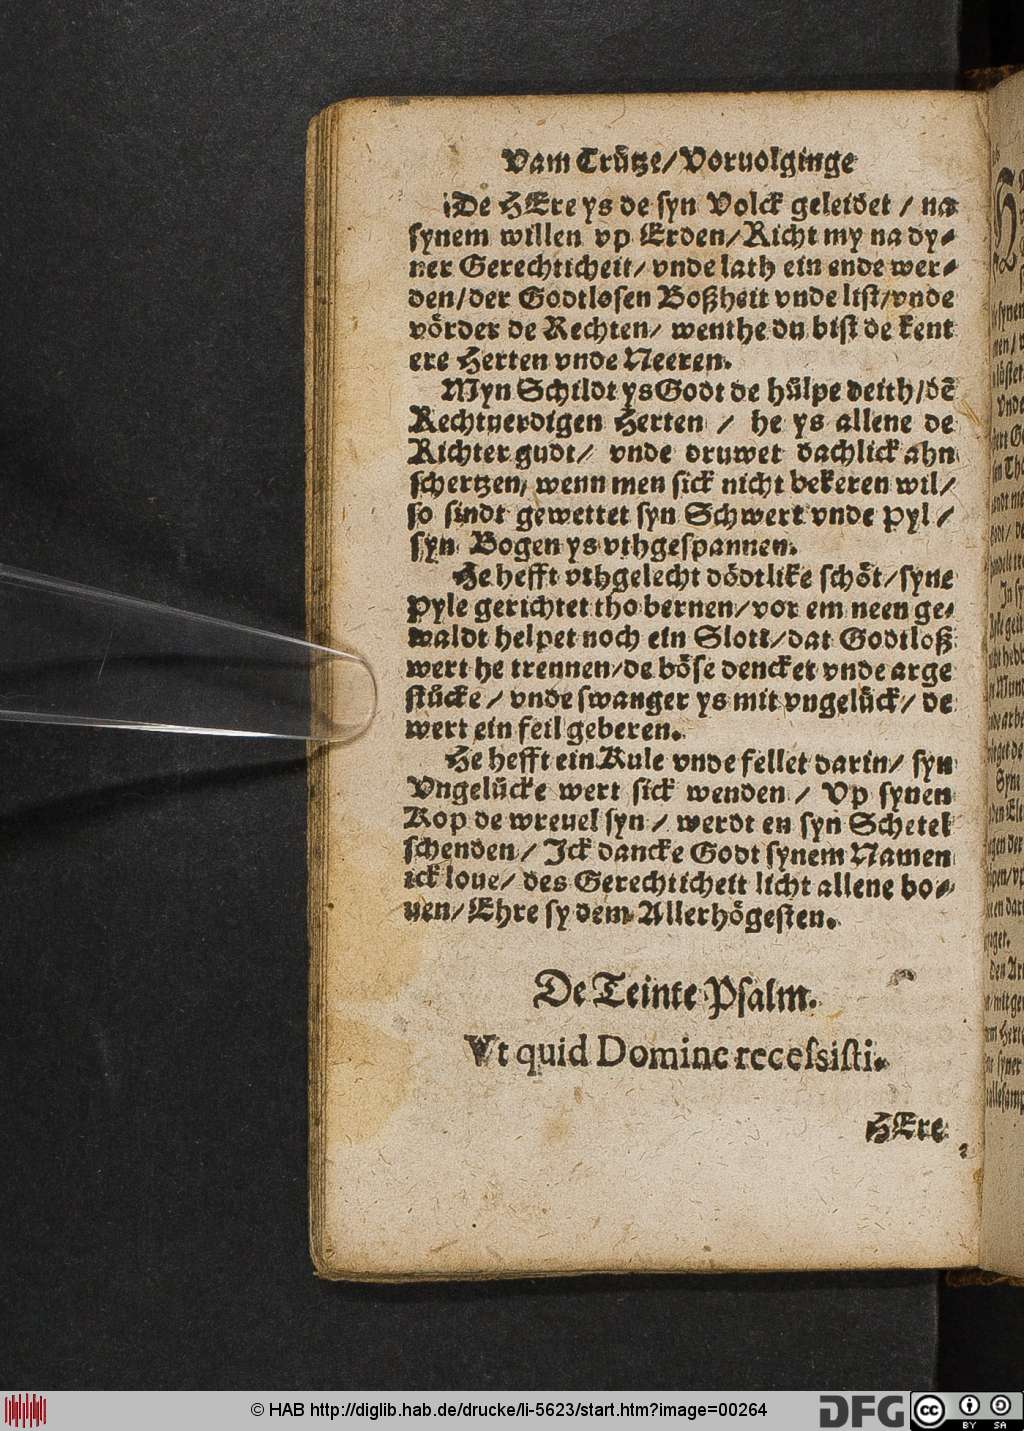 Vam Trůtze/Voruolginge
De HEre ys de syn Volck geleidet / na
synem willen vp Erden/Richt my na dy⸗
ner Gerechticheit/ vnde lath ein ende wer⸗
den/der Godtlosen Boßheit vnde list/vnde
vörder de Rechten/ wenthe du bist de kent
ere Herten vnde Neeren.
Myn Schildt ys Godt de hůlpe deith/dē
Rechtuerdigen Herten / he ys allene de
Richter gudt/ vnde druwet dachlick ahn
schertzen, wenn men sick nicht bekeren wil/
so sindt gewettet syn Schwert vnde Pyl /
syn Bogen ys vthgespannen.
He hefft vthgelecht dödtlike schöt/syne
Pyle gerichtet tho bernen/vor em neen ge⸗
waldt helpet noch ein Slott/dat Godtloß
wert he trennen/de böse dencket vnde arge
stücke / vnde swanger ys mit vngelůck/ de
wert ein feil geberen.
He hefft ein Kule vnde fellet darin/ syn
Vngelücke wert sick wenden / Vp synen
Kop de wreuel syn / werdt en syn Schetel
schenden/ Ick dancke Godt synem Namen
ick loue/ des Gerechticheit licht allene bo⸗
uen/Ehre sy dem Allerhögesten.
De Teinte Psalm.
Vt quid Domine recessisti.
HEre
© HAB http://diglib.hab.de/drucke/li-5623/start.htm?image=00264
DFG
cc
BY SA